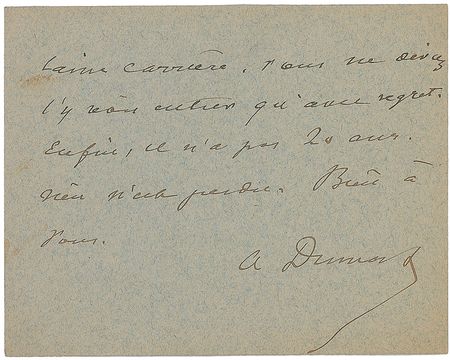 taine carrière. Vous ne devez
l'y voir entrer qu'avec regret.
Enfin, il n'a pas 20 ans.
rien n'est perdu. Bien à
vous.
A Dumas f